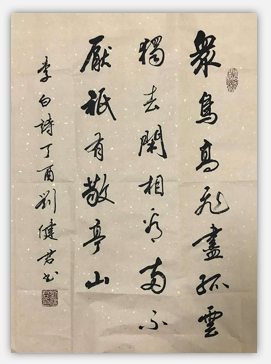 眾鳥高飛盡孤雲
獨去閑相看兩不
厭祗有敬亭山
李白詩丁酉劉健君書